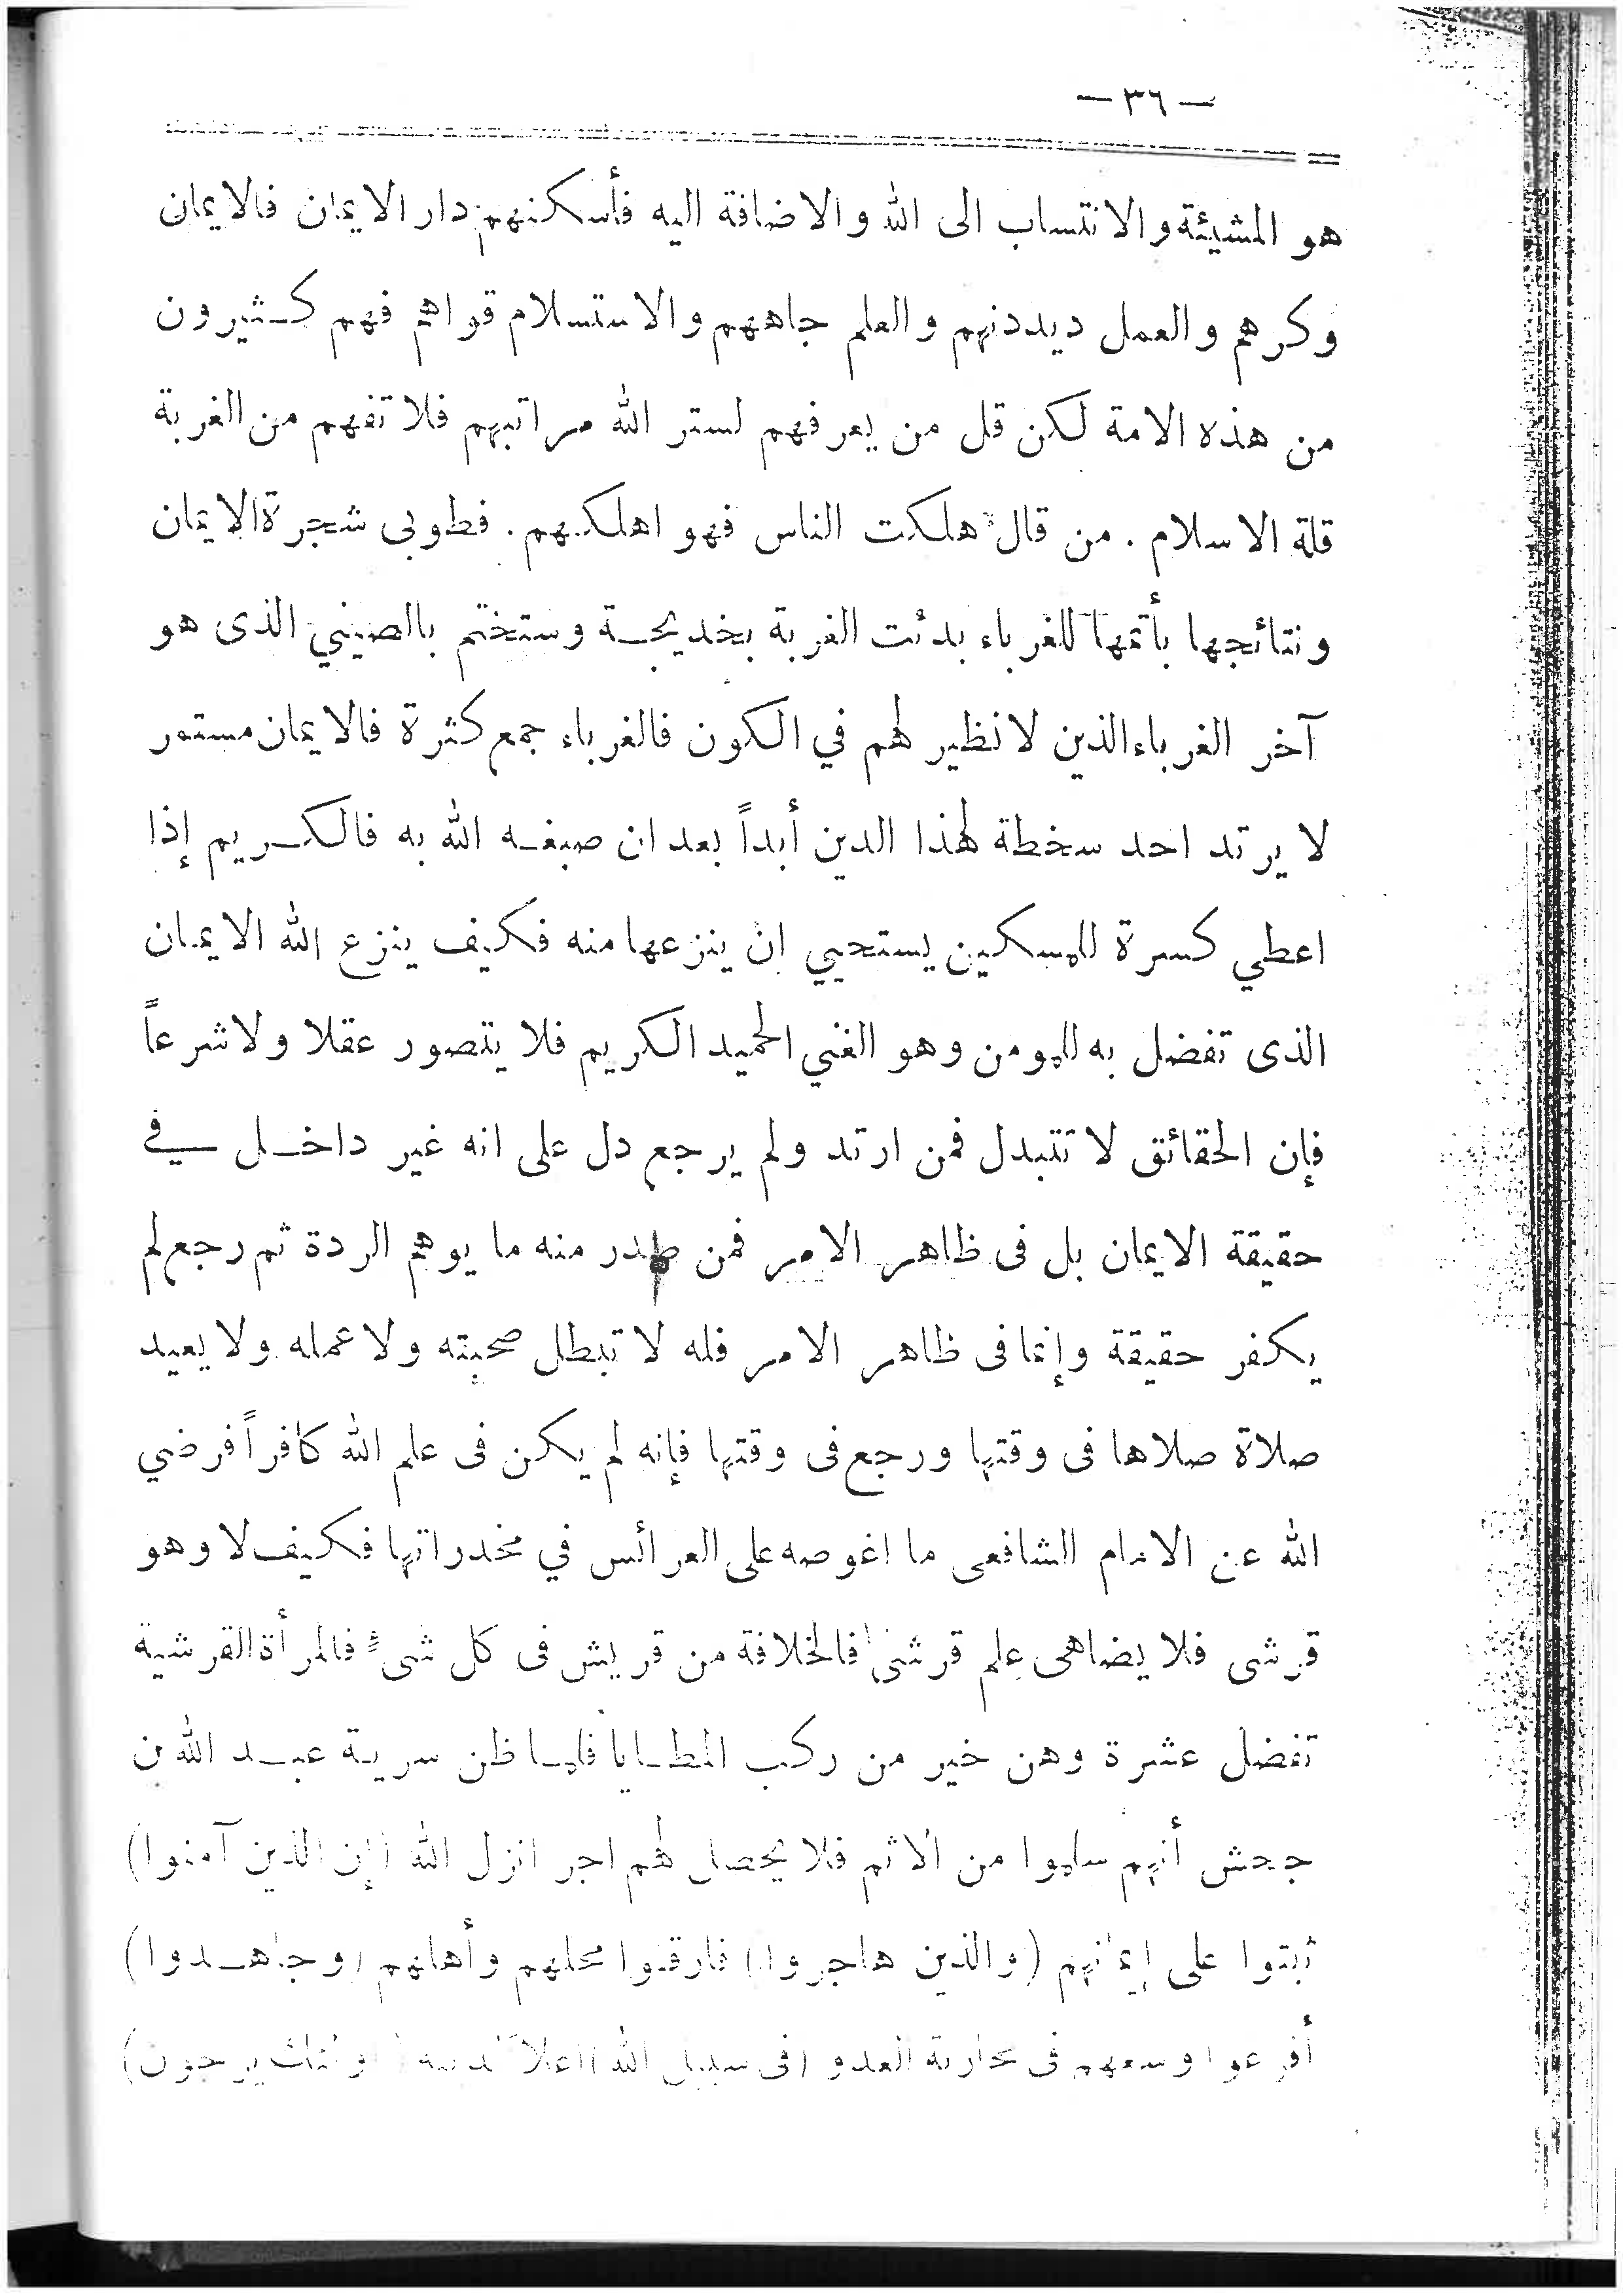 — ٣٦ —
هو المشيئة والانتساب الى الله والاضافة اليه فأسكنهم دار الايمان فالايمان
وكرهم والعمل ديدنهم والعلم جاههم والاستسلام قواهم فهم كثيرون
من هذه الامة لكن قل من يعرفهم لستر الله مراتبهم فلا تفهم من الغربة
قلة الاسلام . من قال هلكت الناس فهو اهلكهم . فطوبى شجرة الايمان
ونتائجها بأتمها للغرباء بدئت الغربة بخديجة وستختم بالصيني الذى هو
آخر الغرباء الذين لا نظير لهم في الكون فالغرباء جمع كثرة فالايمان مستور
لا يرتد احد سخطة لهذا الدين أبداً بعد ان صبغه الله به فالكريم إذا
اعطي كسرة للمسكين يستحيي ان ينزعها منه فكيف ينزع الله الايمان
الذى تفضل به للمومن وهو الغني الحميد الكريم فلا يتصور عقلا ولا شرعاً
فإن الحقائق لا تتبدل فمن ارتد ولم يرجع دل على انه غير داخل في
حقيقة الايمان بل فى ظاهر الامر فمن صدر منه ما يوهم الردة ثم رجع لم
يكفر حقيقة وإنما فى ظاهر الامر فله لا تبطل صحبته ولا عمله ولا يعيد
صلاة صلاها فى وقتها ورجع فى وقتها فإنه لم يكن فى علم الله كافراً فرضي
الله عن الامام الشافعى ما اغوصه على العرائس في مخدراتها فكيف لا وهو
قرشى فلا يضاهى علم قرشى فالخلافة من قريش فى كل شىء فالمرأة القرشية
تفضل عشرة وهن خير من ركب المطايا فلما ظن سرية عبد الله بن
جحش أنهم سلموا من الاثم فلا يحصل لهم اجر انزل الله (إن الذين آمنوا)
ثبتوا على إيمانهم (والذين هاجروا) فارقوا محلهم وأهلهم (وجاهدوا)
أفرغوا وسعهم فى محاربة العدو (فى سبيل الله) اعلاء لدينه (اولئك يرجون)